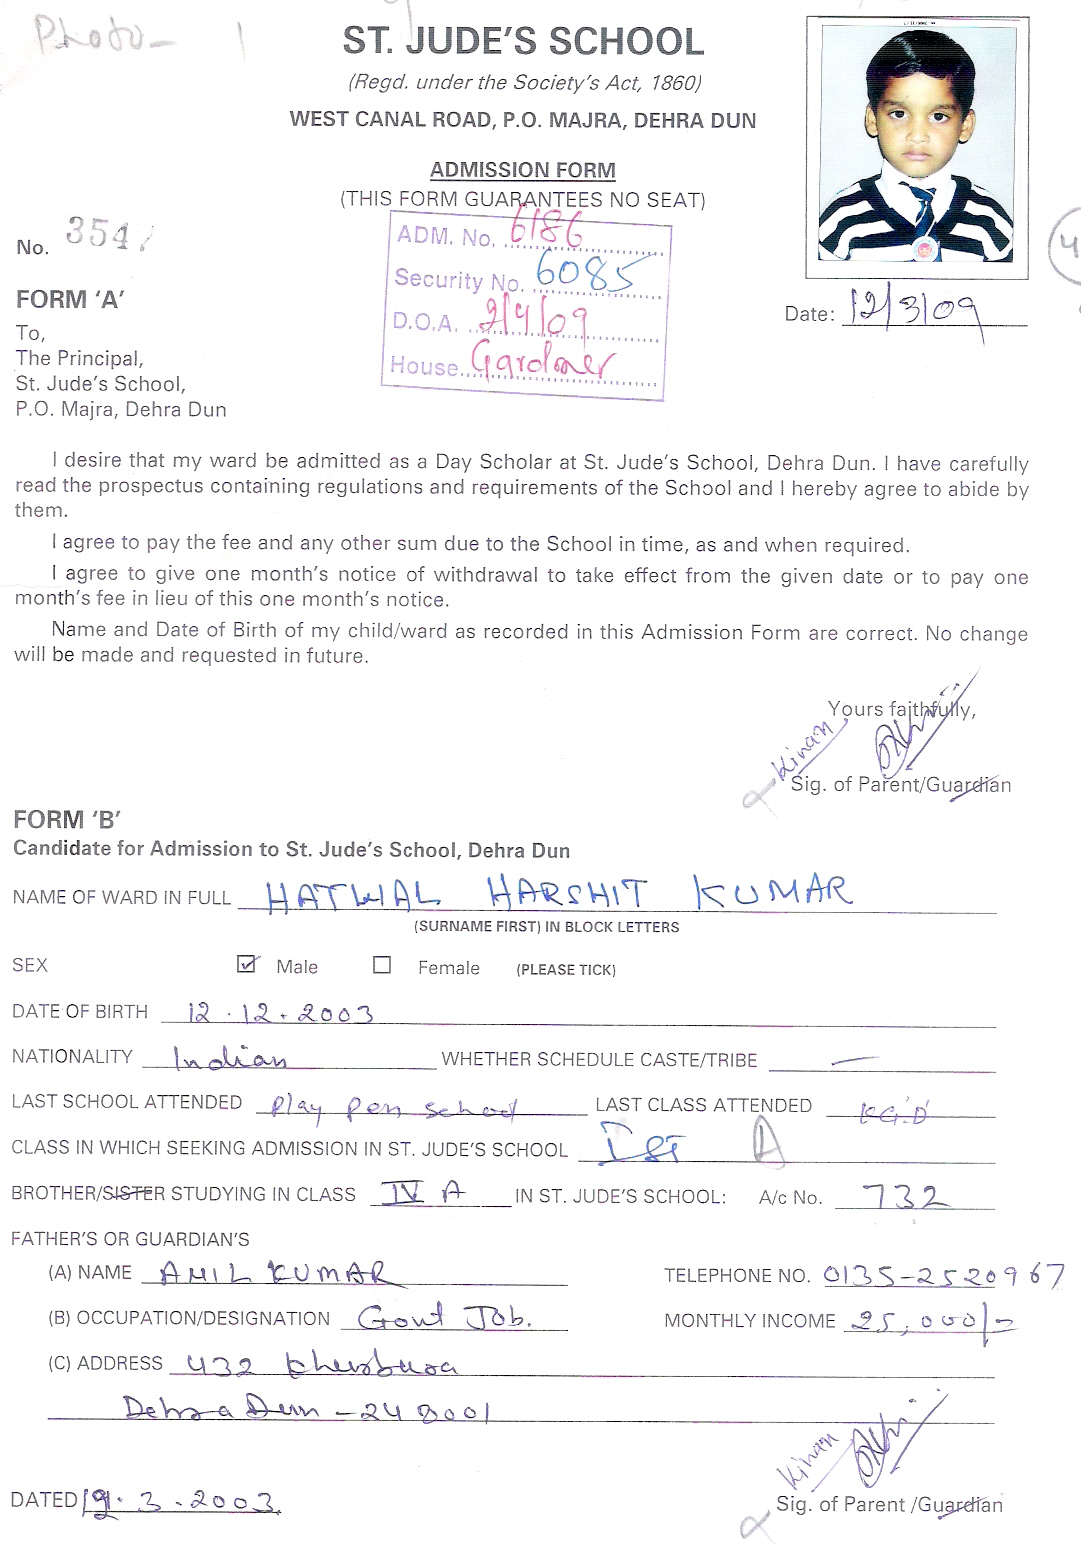 Photo- 1
ST. JUDE'S SCHOOL
(Regd. under the Society's Act, 1860)
WEST CANAL ROAD, P.O. MAJRA, DEHRA DUN
ADMISSION FORM
(THIS FORM GUARANTEES NO SEAT)
No. 354
ADM. No. 6186
Security No. 6085
D.O.A. 2/4/09
House Gardner
4
Date: 12/3/09
FORM 'A'
To,
The Principal,
St. Jude's School,
P.O. Majra, Dehra Dun
I desire that my ward be admitted as a Day Scholar at St. Jude's School, Dehra Dun. I have carefully
read the prospectus containing regulations and requirements of the School and I hereby agree to abide by
them.
I agree to pay the fee and any other sum due to the School in time, as and when required.
I agree to give one month's notice of withdrawal to take effect from the given date or to pay one
month's fee in lieu of this one month's notice.
Name and Date of Birth of my child/ward as recorded in this Admission Form are correct. No change
will be made and requested in future.
Yours faithfully,
Kiran
Sig. of Parent/Guardian
FORM 'B'
Candidate for Admission to St. Jude's School, Dehra Dun
NAME OF WARD IN FULL HATWAL HARSHIT KUMAR
(SURNAME FIRST) IN BLOCK LETTERS
SEX Male Female (PLEASE TICK)
DATE OF BIRTH 12.12.2003
NATIONALITY Indian WHETHER SCHEDULE CASTE/TRIBE —
LAST SCHOOL ATTENDED Play pen school LAST CLASS ATTENDED KG.D
CLASS IN WHICH SEEKING ADMISSION IN ST. JUDE'S SCHOOL Ist A
BROTHER/SISTER STUDYING IN CLASS IV A IN ST. JUDE'S SCHOOL: A/c No. 732
FATHER'S OR GUARDIAN'S
(A) NAME ANIL KUMAR TELEPHONE NO. 0135-2520967
(B) OCCUPATION/DESIGNATION Govt Job. MONTHLY INCOME 25,000/-
(C) ADDRESS 432 Khurbura
Dehra Dun - 248001
Kiran
DATED 19.3.2003.
Sig. of Parent /Guardian